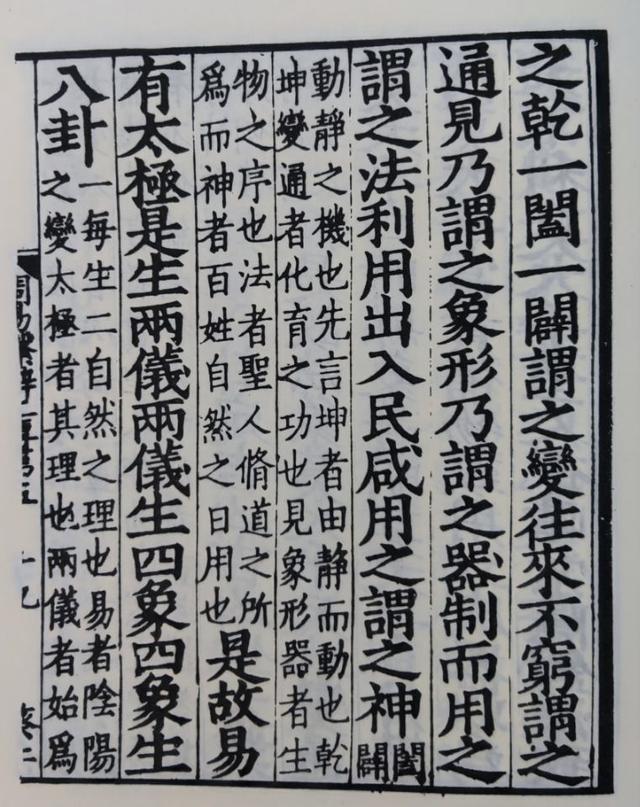 之乾一闔一闢謂之變往來不窮謂之
通見乃謂之象形乃謂之器制而用之
謂之法利用出入民咸用之謂之神
闔
闢
動靜之機也先言坤者由靜而動也乾
坤變通者化育之功也見象形器者生
物之序也法者聖人脩道之所
爲而神者百姓自然之日用也
是故易
有太極是生兩儀兩儀生四象四象生
八卦
一每生二自然之理也易者陰陽
之變太極者其理也兩儀者始爲